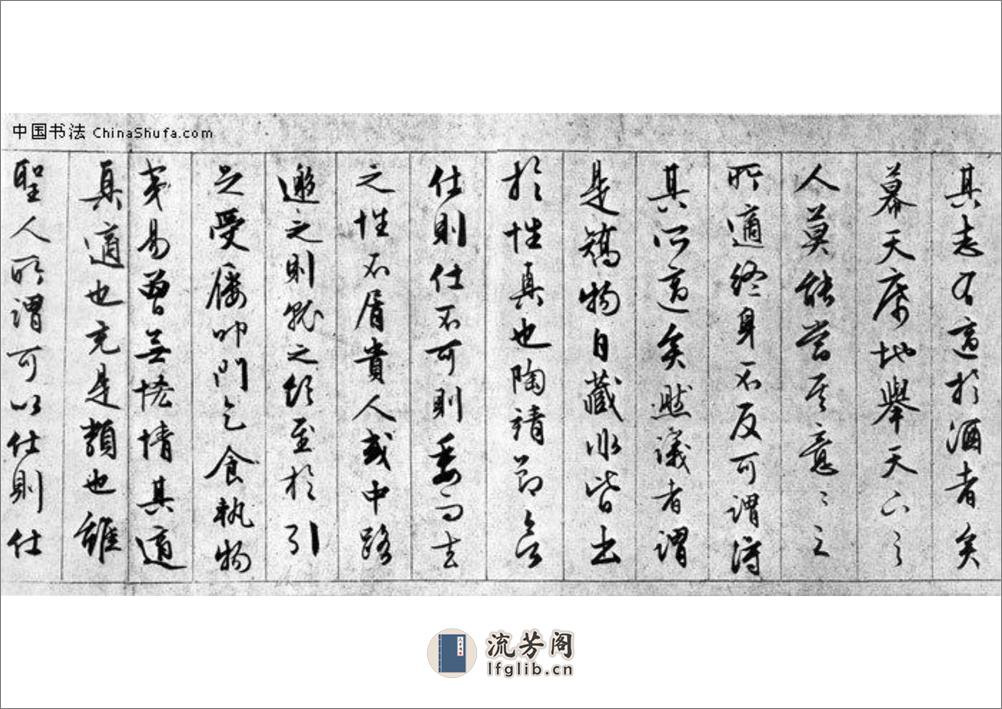 中国书法 ChinaShufa.com
其志有適於酒者矣
幕天席地舉天下之
人莫能嘗其意意之
所適終身不反可謂得
其所適矣然議者謂
是矯物自藏非皆出
於性真也陶靖節
仕則仕不可則委而去
之性不屑貴人或中路
邀之則就之領至於引
之受屢叩門乞食執物
交易曾無惓情其適
真適也充是類也雖
聖人所謂可以仕則仕
流芳阁
lfglib.cn